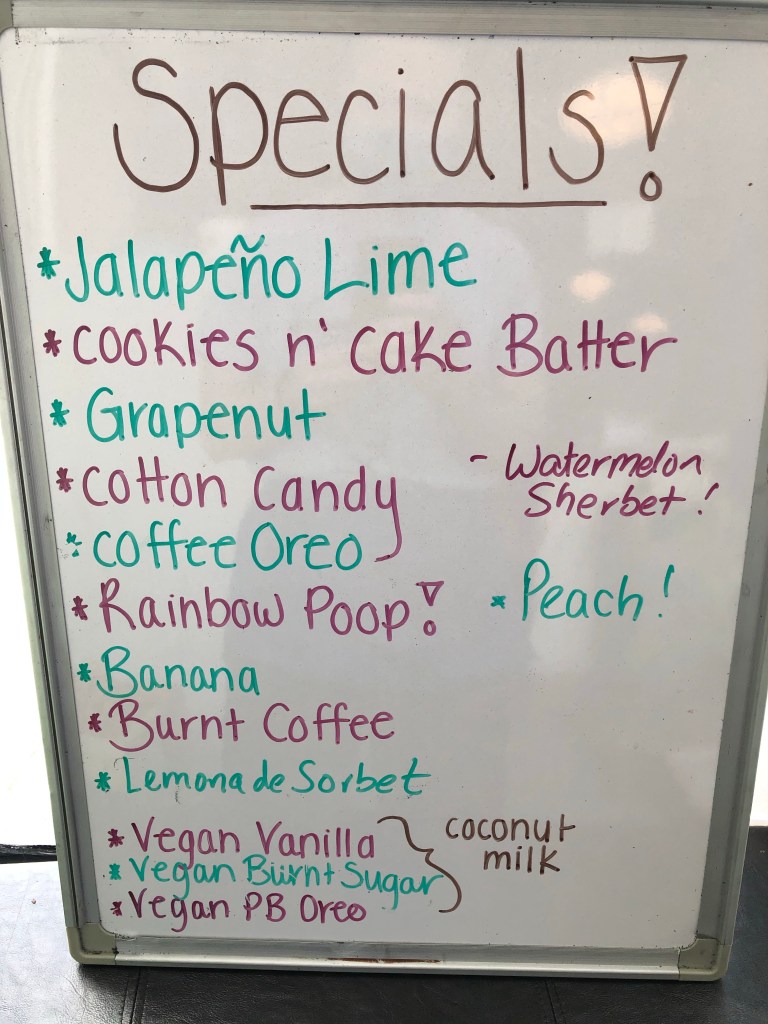 Specials!
*Jalapeño Lime
*cookies n' cake Batter
* Grapenut
*cotton candy
- Watermelon
Sherbet!
*coffee Oreo
*Rainbow Poop!
* Peach!
*Banana
*Burnt Coffee
*Lemonade Sorbet
*Vegan Vanilla
*Vegan Burnt Sugar
*Vegan PB Oreo
coconut
milk